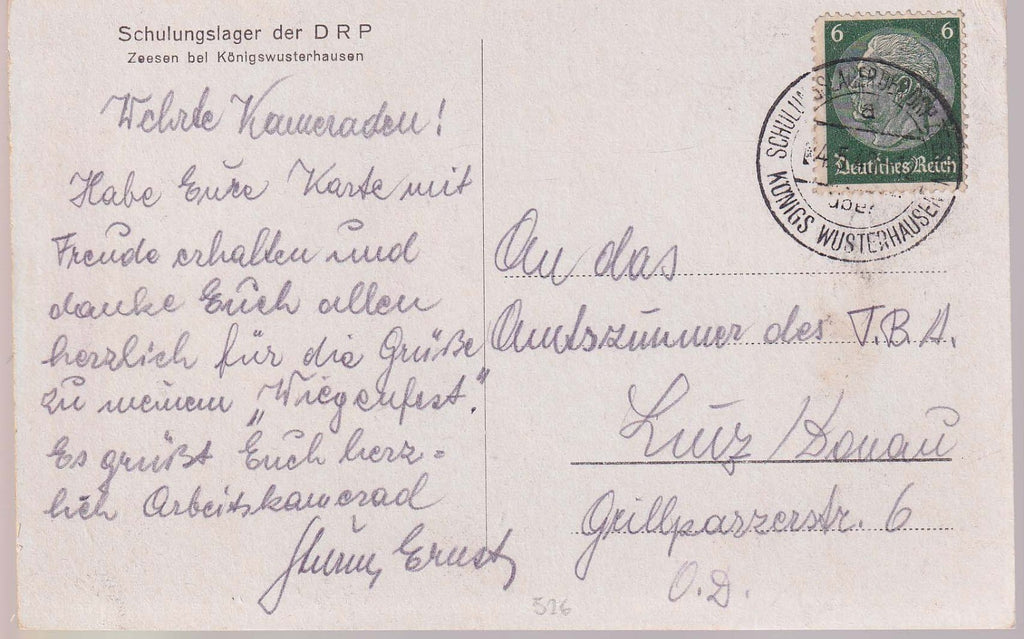 Schulungslager der DRP
Zeesen bei Königswusterhausen
Wehrte Kameraden!
Habe Eure Karte mit
Freude erhalten und
danke Euch allen
herzlich für die Grüße
zu meinem „Wiegenfest“.
Es grüßt Euch herz=
lich Arbeitskamerad
Sturm, Ernst
6 6
Deutsches Reich
SCHULUN
KÖNIGS WUSTERHAUSEN
An das
Amtszimmer des T.B.A.
Linz /Donau
Grillparzerstr. 6
O.D.
526